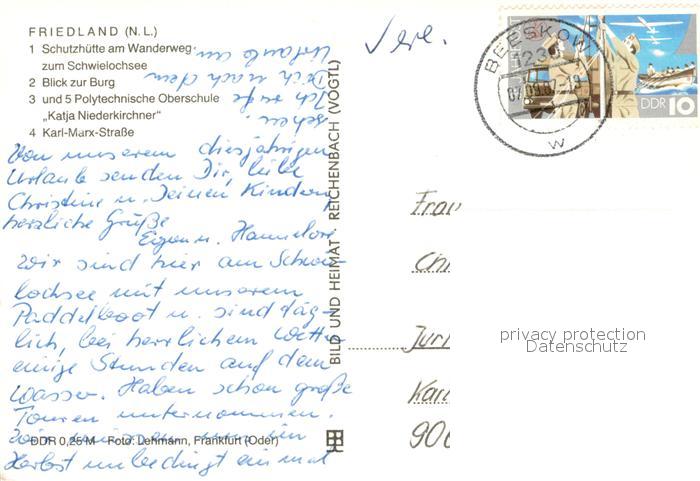 FRIEDLAND (N. L.)
1 Schutzhütte am Wanderweg
zum Schwielochsee
2 Blick zur Burg
3 und 5 Polytechnische Oberschule
„Katja Niederkirchner"
4 Karl-Marx-Straße
Von unserem diesjährigen
Urlaub senden Dir, liebe
Christine u. Deinen Kindern
herzliche Grüße
Eugen u. Hannelore
Wir sind hier am Schwie-
lochsee mit unserem
Paddelboot u. sind täg-
lich, bei herrlichem Wetter
einige Stunden auf dem
Wasser. Haben schon große
Touren unternommen.
Wir müssen uns im
Herbst unbedingt einmal
sehen.
Ich rufe
Dich nach dem
Urlaub an.
DDR 0,25 M Foto: Lehmann, Frankfurt (Oder)
BILD UND HEIMAT · REICHENBACH (VOGTL)
BEESKOW
123
W
DDR 10
Frau
Karl
privacy protection
Datenschutz